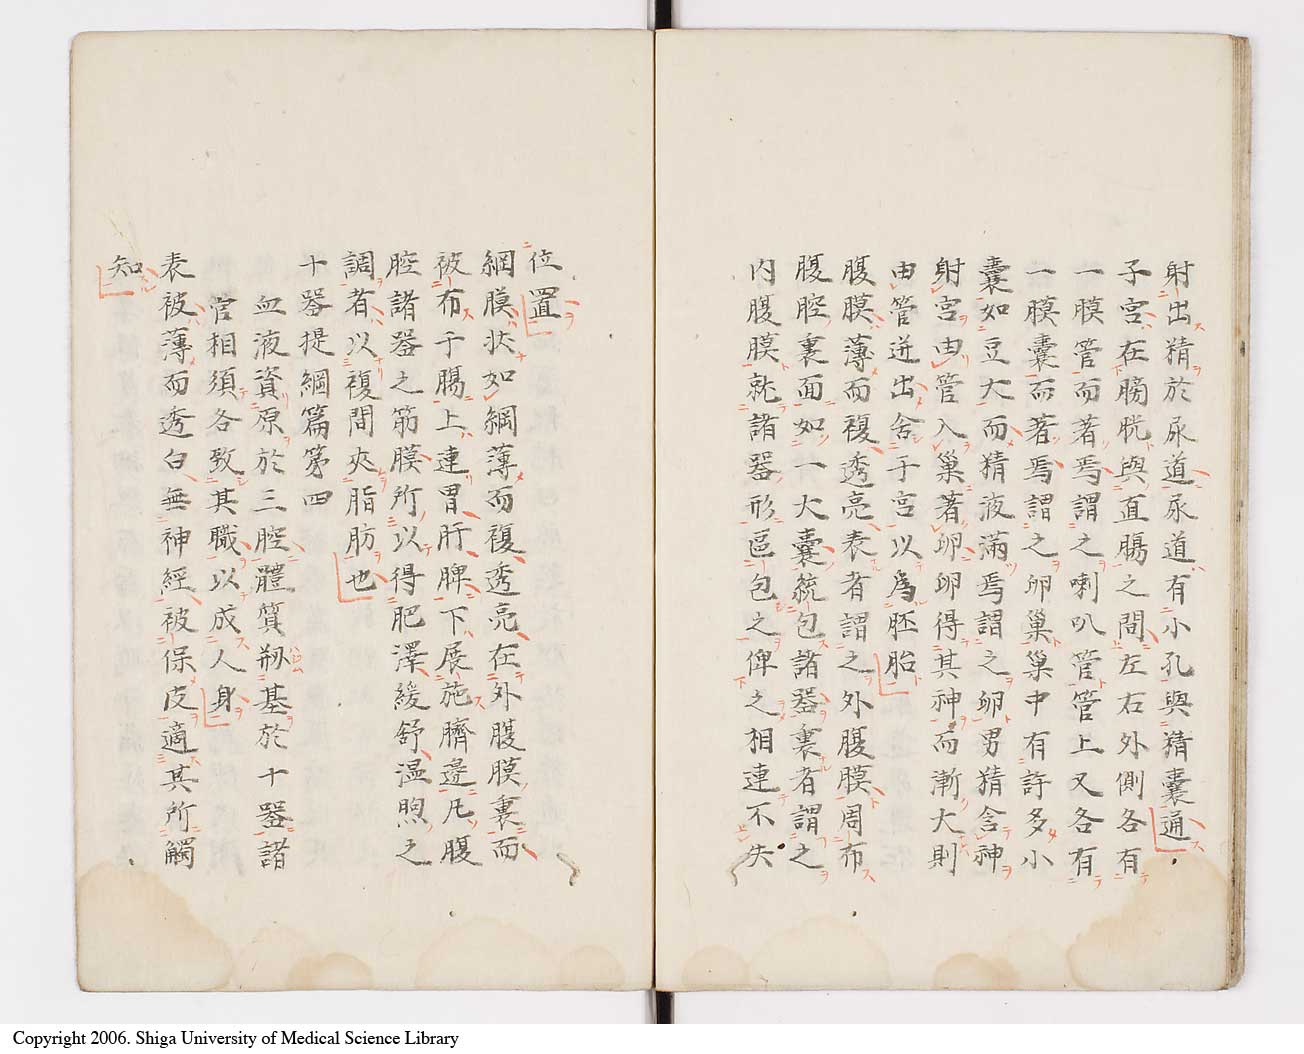 射出精於尿道尿道有小孔與精囊通
子宮在膀胱與直腸之間左右外側各有
一膜管而著焉謂之喇叭管管上又各有
一膜囊而著焉謂之卵巢巢中有許多小
囊如豆大而精液滿焉謂之卵男精含神
射宮由管入巢著卵卵得其神而漸大則
由管迸出舍于宮以爲胚胎
腹膜薄而複透亮表者謂之外腹膜周布
腹腔裏面如一大囊統包諸器裏者謂之
内腹膜就諸器形區包之俾之相連不失
位置
網膜狀如網薄而複透亮在外腹膜裏而
被布于腸上連胃肝脾下展施臍邊凡腹
腔諸器之筋膜所以得肥澤緩舒温煦之
調者以複間夾脂肪也
十器提綱篇第四
血液資原於三腔體質剏基於十器諸
官相須各致其職以成人身
表被薄而透白無神經被保皮適其所觸
知
Copyright 2006. Shiga University of Medical Science Library